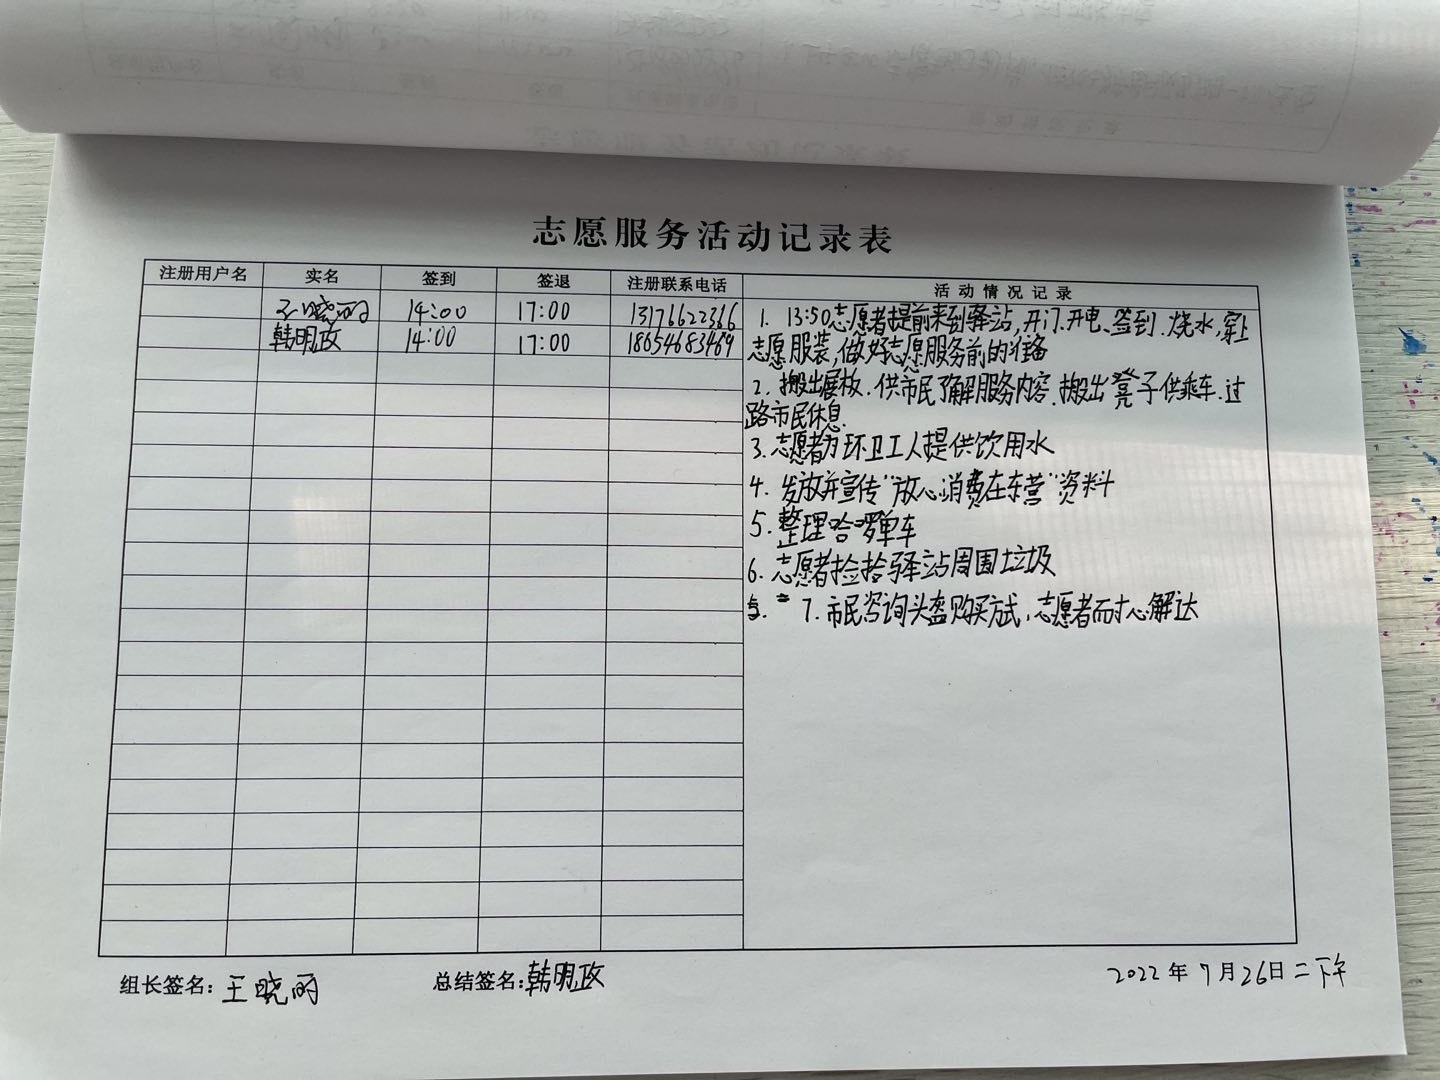 志愿服务活动记录表
注册用户名 实名 签到 签退 注册联系电话 活动情况记录
王晓丽 14:00 17:00 13176622366
韩明政 14:00 17:00 18654683469
1. 13:50志愿者提前来到驿站,开门.开电.签到.烧水,穿上
志愿服装,做好志愿服务前的准备
2. 搬出展板.供市民了解服务内容.搬出凳子供乘车.过
路市民休息.
3. 志愿者为环卫工人提供饮用水
4. 发放并宣传"放心消费在东营"资料
5. 整理哈啰单车
6. 志愿者捡拾驿站周围垃圾
7. 市民咨询头盔购买方式,志愿者耐心解达
组长签名: 王晓丽 总结签名: 韩明政 2022年7月26日二下午